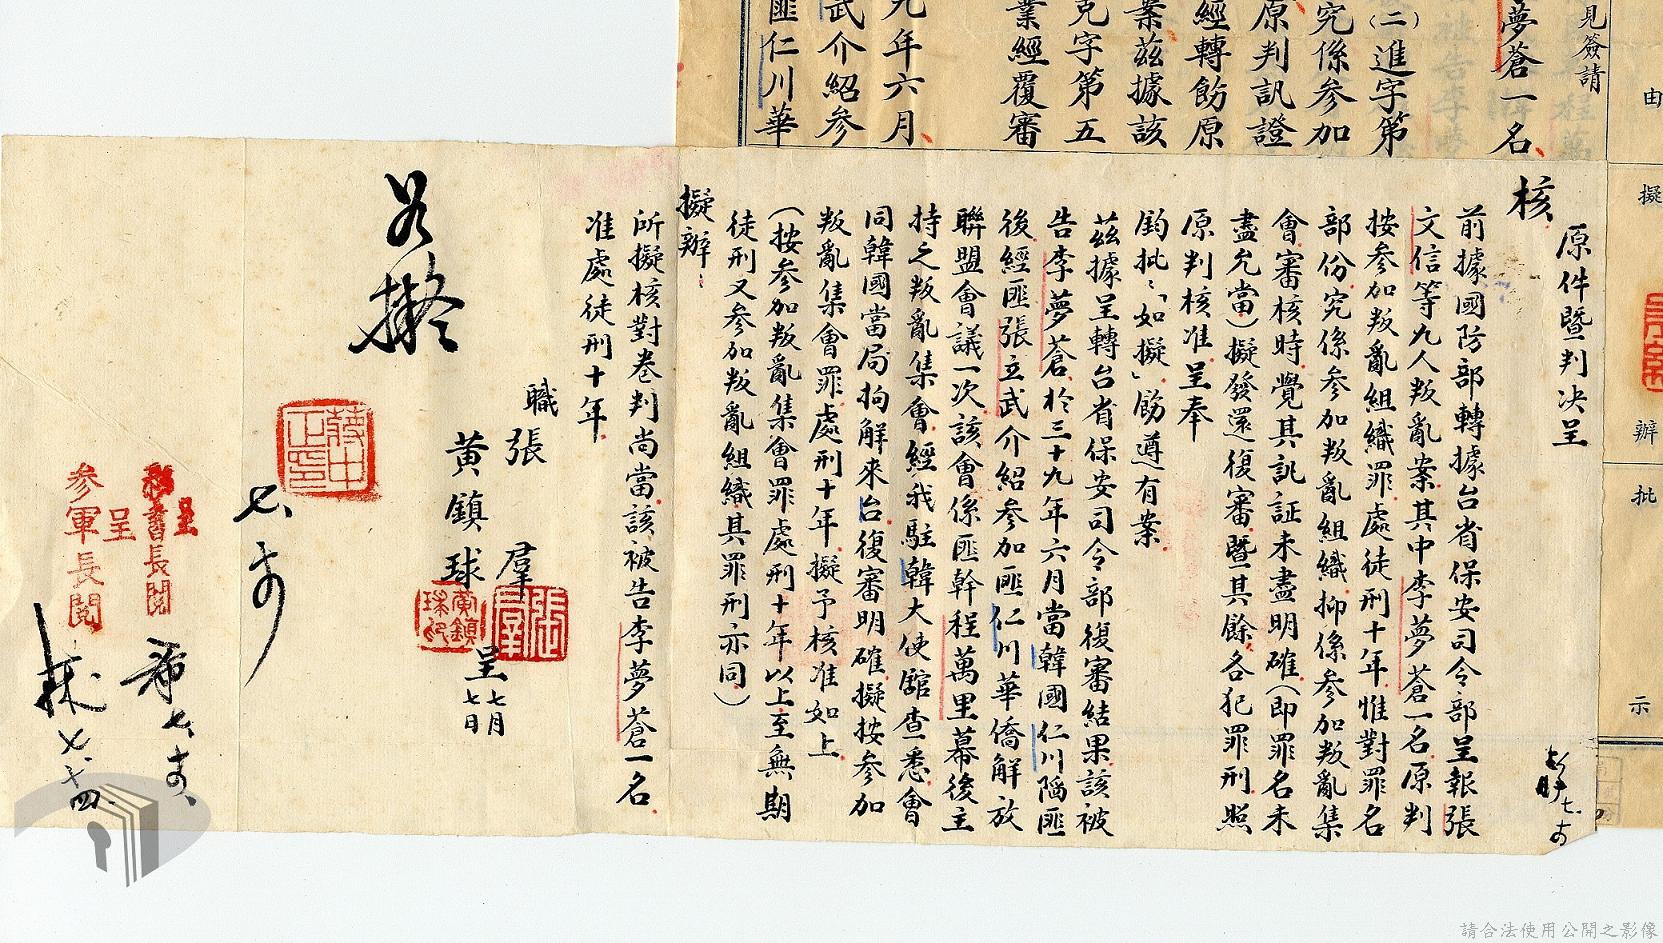 見簽請
夢蒼一名、
(二)進字第
究係參加
原判訊證
經轉飭原
案茲據該
克字第五
業經覆審
九年六月、
武介紹參
匪仁川華
由
擬
辦
批
示
核
原件暨判決呈
前據國防部轉據台省保安司令部呈報張
文信等九人叛亂案、其中李夢蒼一名、原判
按參加叛亂組織罪、處徒刑十年、惟對罪名
部份、究係參加叛亂組織、抑係參加叛亂集
會審核時、覺其訊証未盡明確(即罪名未
盡允當)擬發還復審、暨其餘各犯罪刑、照
原判核准、呈奉
鈞批:「如擬」、飭遵有案、
茲據呈轉台省保安司令部復審結果、該被
告李夢蒼、於三十九年六月當韓國仁川陷匪
後、經匪張立武介紹參加匪仁川華僑解放
聯盟會議一次、該會係匪幹程萬里幕後主
持之叛亂集會、經我駐韓大使館查悉、會
同韓國當局拘解來台、復審明確、擬按參加
叛亂集會罪、處刑十年、擬予核准如上
(按參加叛亂集會罪、處刑十年以上至無期
徒刑、又參加叛亂組織、其罪刑亦同、)
擬辦:
所擬核對卷判尚當、該被告李夢蒼一名、
准處徒刑十年、
職張 羣
黃鎮球
呈 七月七日
張羣
黃鎮球印
如擬
蔣中正印
呈
秘書長閱
呈
參軍長閱
請合法使用公開之影像